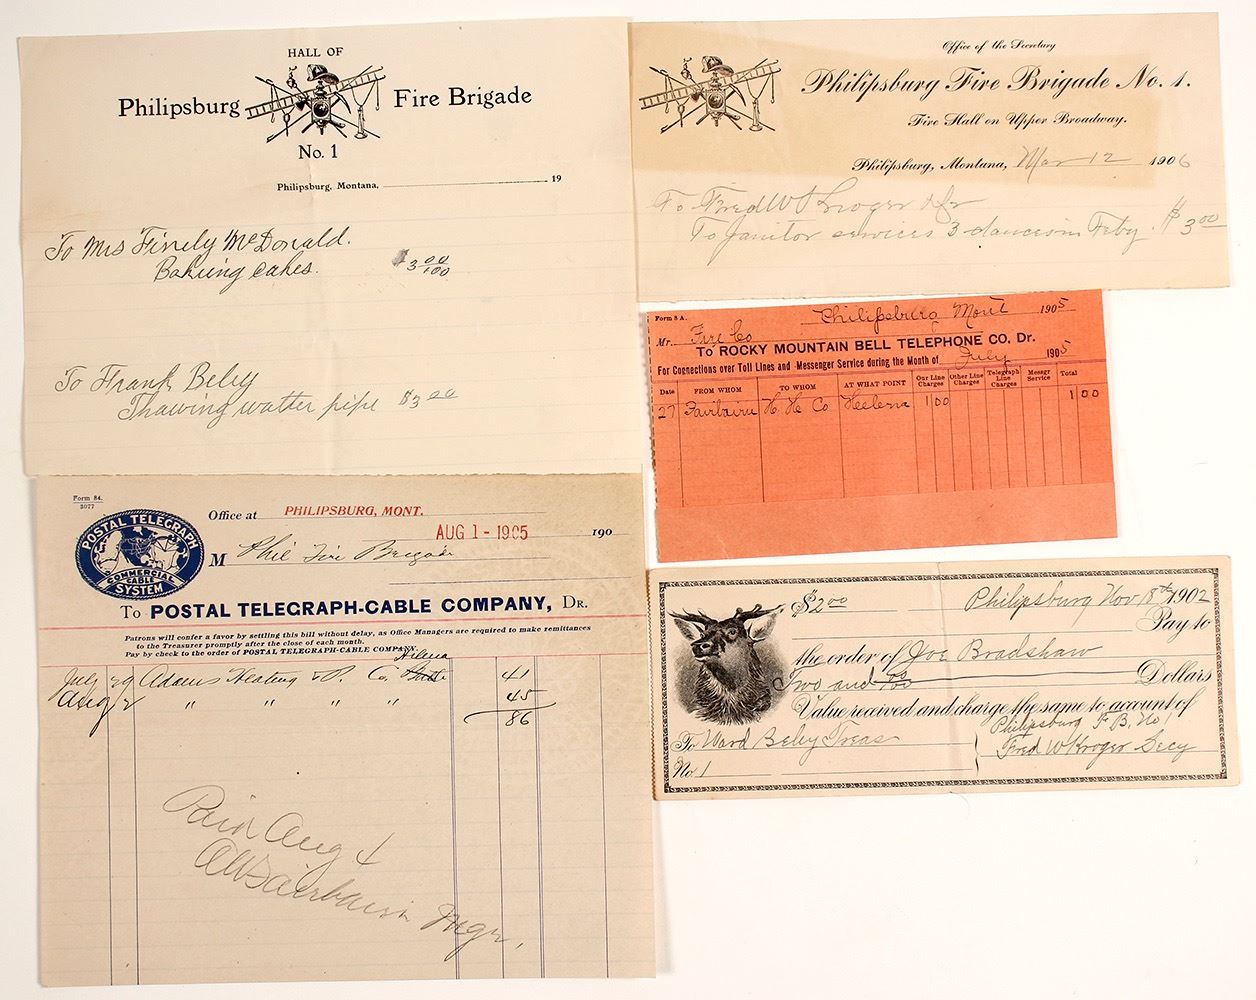 HALL OF
Philipsburg Fire Brigade
No. 1
Philipsburg, Montana, 19
To Mrs Finely McDonald.
Baking cakes. $3 00/100
To Frank Beley
Thawing watter pipe $3 00
Office of the Secretary
Philipsburg Fire Brigade No. 1.
Fire Hall on Upper Broadway.
Philipsburg, Montana, Mar 12 1906
To Fred W Kroger Dr
To Janitor services 3 dances in Feby. $3 00
Form 8 A.
Philipsburg Mont 1905
Mr. Fire Co
To ROCKY MOUNTAIN BELL TELEPHONE CO. Dr.
For Connections over Toll Lines and Messenger Service during the Month of July 1905
Date FROM WHOM TO WHOM AT WHAT POINT Our Line Charges Other Line Charges Telegraph Line Charges Messgr Service Total
27 Fairbairn H. H. Co Helena 1 00 1 00
Form 84.
3077
POSTAL TELEGRAPH
COMMERCIAL
CABLE
SYSTEM
Office at PHILIPSBURG, MONT.
AUG 1 - 1905 190
M Phil Fire Brigade
To POSTAL TELEGRAPH-CABLE COMPANY, Dr.
Patrons will confer a favor by settling this bill without delay, as Office Managers are required to make remittances
to the Treasurer promptly after the close of each month.
Pay by check to the order of POSTAL TELEGRAPH-CABLE COMPANY.
Helena
July 29 Adams Heating & P. Co. Butte 41
Aug 2 " " " " 45
86
Paid Aug 4
AW Fairbairn Mgr.
$2 00 Philipsburg Nov 18th 1902
Pay to
the order of Joe Bradshaw
Two and 00/100 Dollars
Value received and charge the same to account of
Philipsburg F. B. No 1
To Ward Beley Treas
Fred W Kroger Secy
No 1